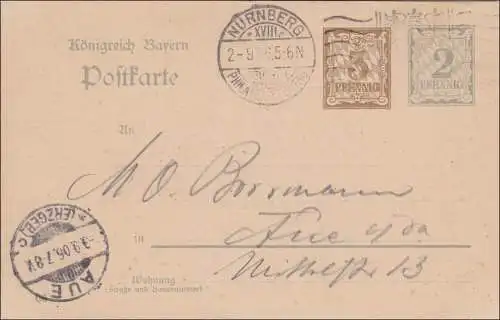 Königreich Bayern
Postkarte
NÜRNBERG
* XVIII. *
3
PFENNIG
2
PFENNIG
An
M. O. Borrmann
in
Aue
13
Wohnung
(Straße und Hausnummer)
AUE
* (ERZGEB) C
3.9.06.7-8V.